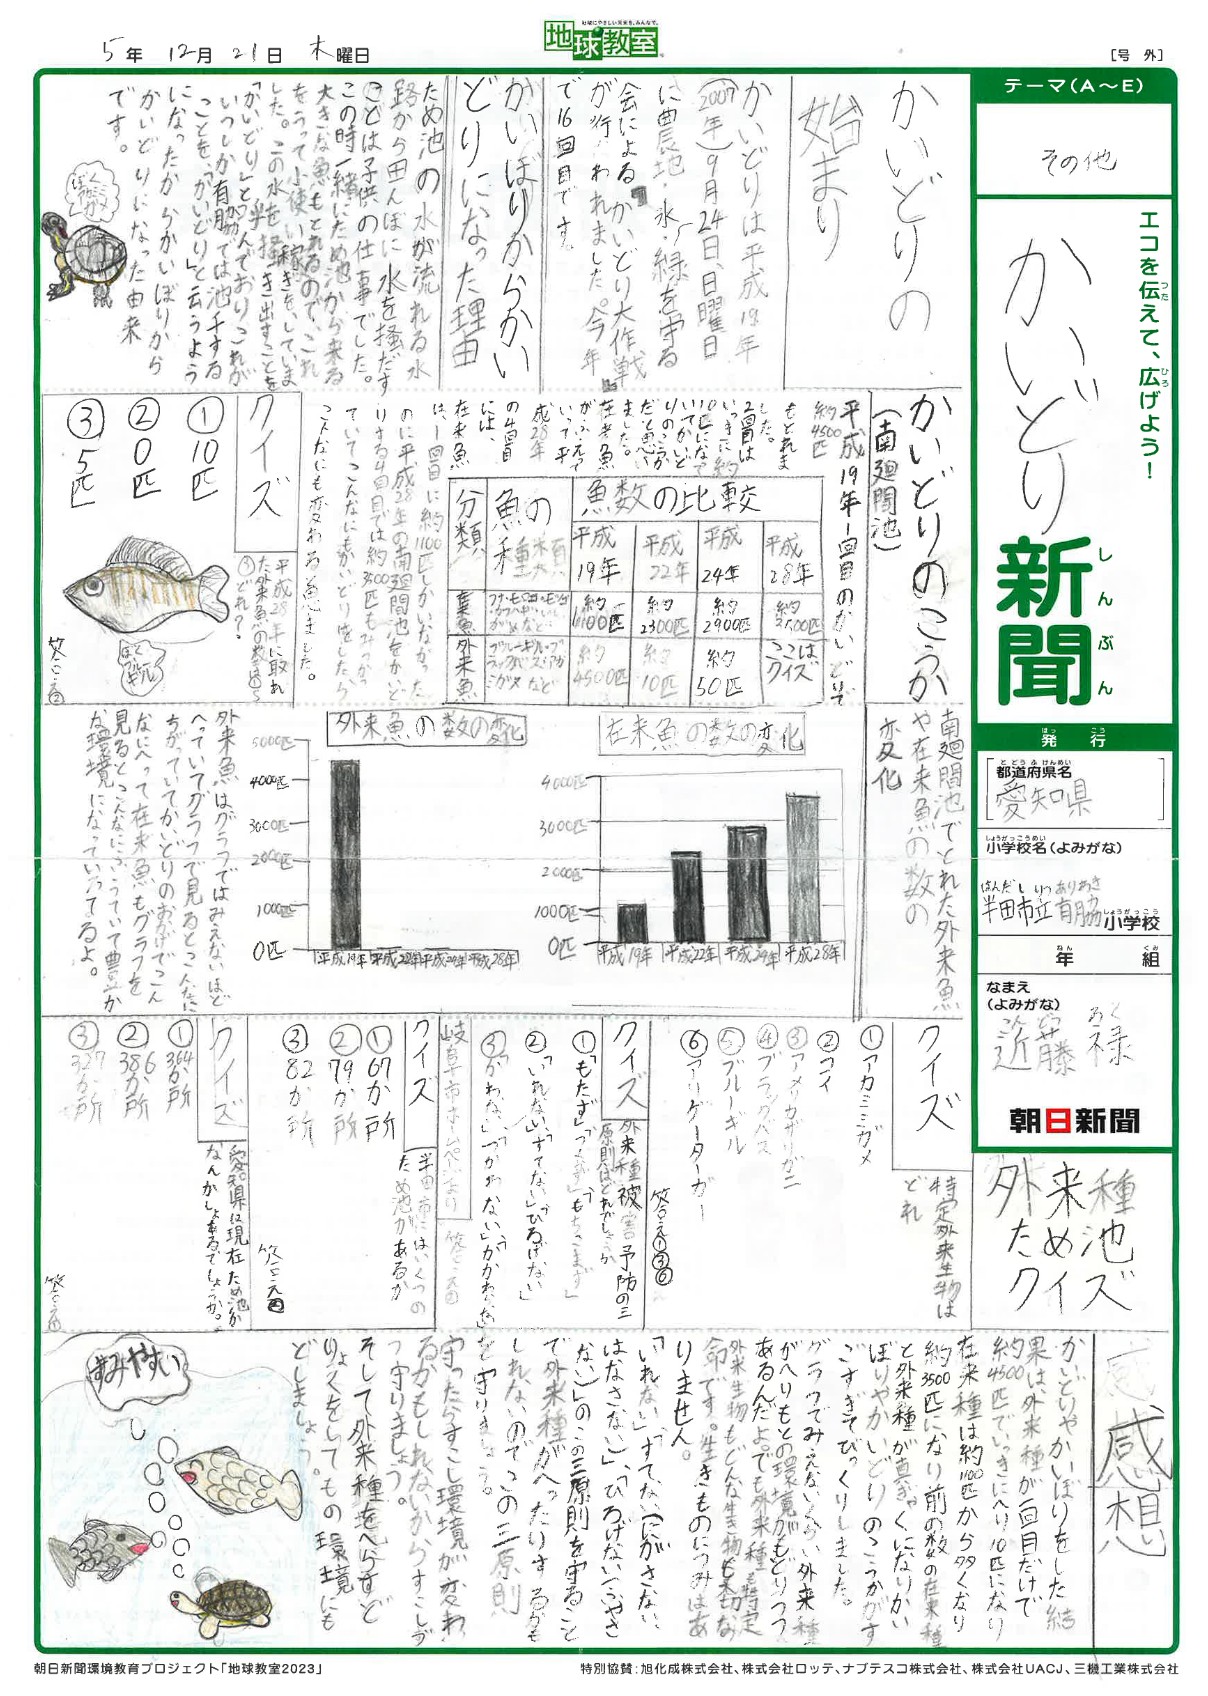 5年 12月 21日 木曜日
社会にやさしい未来を、みんなで。
地球教室
[号 外]
テーマ(A～E)
その他
エコを伝えて、広げよう!
つた
ひろ
かいどり
新聞
しんぶん
発行
はっこう
都道府県名
とどうふけんめい
愛知県
小学校名(よみがな)
しょうがっこうめい
はんだしりつありわき
半田市立有脇小学校
しょうがっこう
年 組
ねん くみ
なまえ
(よみがな)
こんどう ろく
近藤 禄
朝日新聞
かいどりの
始まり
かいどりは平成19年
(2007年)9月24日、日曜日
に農地・水・緑を守る
会によるかいどり大作戦
が行われました。今年
で16回目です。
かいぼりからかい
どりになった理由
ため池の水が流れる水
路から田んぼに水を掻だす
ことは子供の仕事でした。
この時一緒にため池から来る
大きな魚もとれるので、これ
をうって小使い稼ぎをしていま
した。この水を掻き出すことを
「かいどり」とよんでおりこれが
いつしか有脇では池干する
ことを、「かいどり」と云うよう
になったからかいぼりから
かいどりになった由来
です。
ぼくカメ
かいどりのこうか
(南廻間池)
平成19年1回目のかいどりで
約4500匹
もとれま
した。
2回目は
いっきに約
10匹になっ
ていてかいど
りのこうか
だと思い
ました。
在来魚
がふえて
いって、平
成28年
の4回目
には、
在来魚
は、1回目に約1100匹しかいなかった
のに平成28年の南廻間池をかいど
りする4回目では約3500匹もみつかっ
ていてこんなにもかいどりをしたら
こんなにも変わると思いました。
魚の種類
分類
魚数の比較
平成19年
平成22年
平成24年
平成28年
在来魚
約1100匹
約2300匹
約2900匹
約3500匹
外来魚
約4500匹
約10匹
約50匹
ここはクイズ
クイズ
平成28年に取れ
た外来魚の数は①～
③どれ?
①10匹
②0匹
③5匹
答え②
ぼくブルーギル
南廻間池でとれた外来魚
や在来魚の数の
変化
在来魚の数の変化
4000匹
3000匹
2000匹
1000匹
0匹
平成19年 平成22年 平成24年 平成28年
外来魚の数の変化
5000匹
4000匹
3000匹
2000匹
1000匹
0匹
平成19年 平成22年 平成24年 平成28年
外来魚はグラフではみえないほど
へっていてグラフで見るとこんなに
ちがっていてかいどりのおかげでこん
なにへって在来魚もグラフを
見るとこんなにふえていて豊か
な環境になっていってるよ。
外来種
ため池
クイズ
クイズ
特定外来生物は
どれ
①アカミミガメ
②コイ
③アメリカザリガニ
④ブラックバス
⑤ブルーギル
⑥アリゲーターガー
クイズ
外来種被害予防の三
原則はどれでしょうか
①「もたず」「つくらず」「もちこまず」
②「いれない」「すてない」「ひろげない」
岐阜市ホームページより
クイズ
半田市にはいくつの
ため池があるか
①67か所
②79か所
③82か所
クイズ
愛知県は現在ため池が
なんかしょあるでしょうか。
①364か所
②386か所
③327か所
感想
かいどりやかいぼりをした結
果は、外来種が一回目だけで
約4500匹でいっきにへり10匹になり
在来種は約1100匹から多くなり
約3500匹になり前の数の在来種
と外来種が真ぎゃくになりかい
ぼりやかいどりのこうかがす
ごすぎてびっくりしました。
グラフでみえないくらい外来種
がへりもとの環境がもどりつつ
あるんだよ。でも外来種も特定
外来生物もどんな生き物も大切な
命です。生きものにつみはあ
りません。
「いれない」「すてない(にがさない、
はなさない)」、「ひろげない(ふやさ
ない)」のこの三原則を守ること
で外来種がへったりするかも
しれないのでこの三原則
を守りましょう。
守ったらすこし環境が変わ
るかもしれないからすこしず
つ守りましょう。
そして外来種をへらすど
りょくをしてもとの環境にも
どしましょう。
すみやすい
朝日新聞環境教育プロジェクト「地球教室2023」
特別協賛:旭化成株式会社、株式会社ロッテ、ナブテスコ株式会社、株式会社UACJ、三機工業株式会社